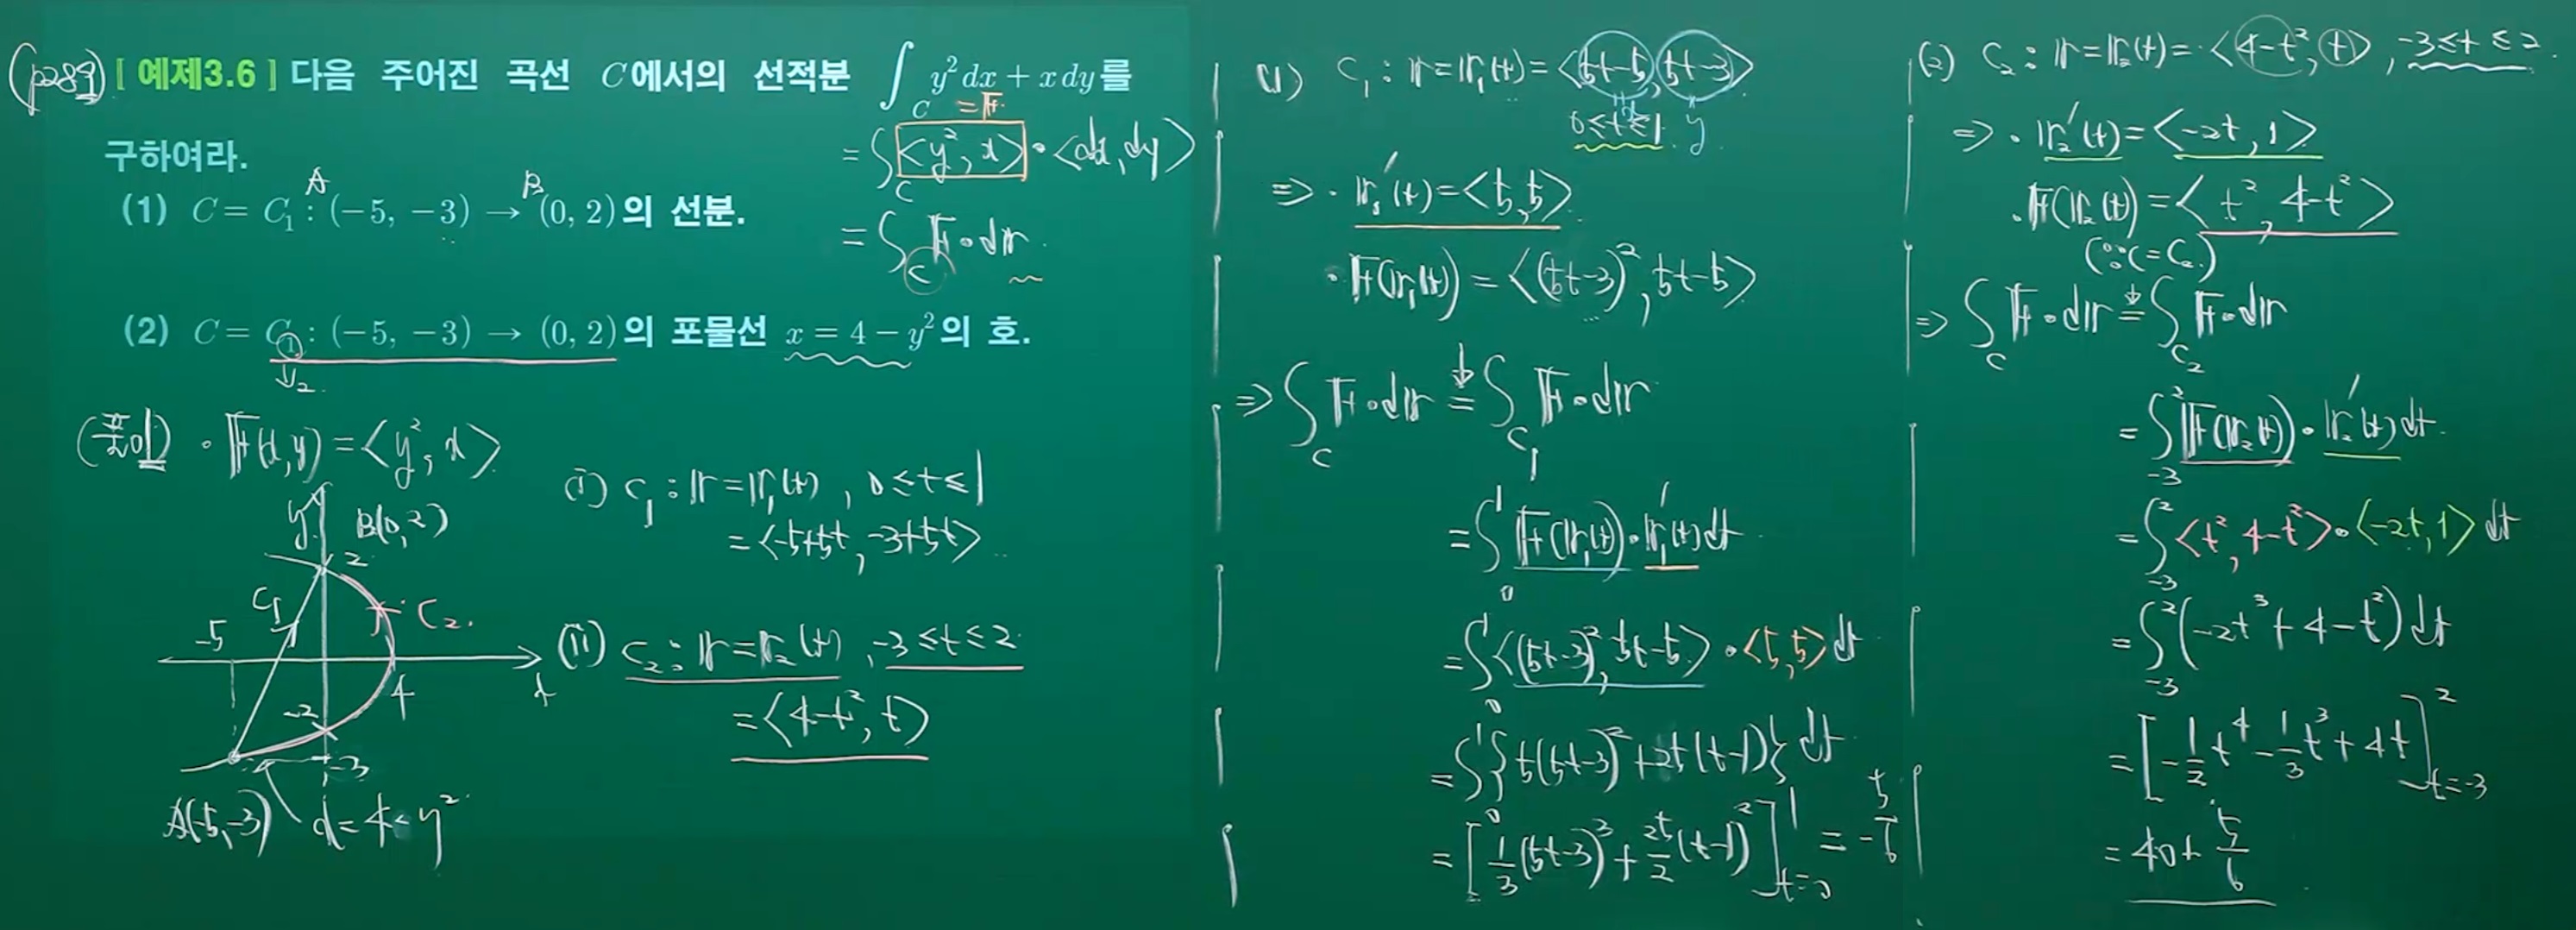 (p289) [ 예제3.6 ] 다음 주어진 곡선 C에서의 선적분 ∫_C y² dx + x dy 를
구하여라.
= F
= ∫_C <y², x> • <dx, dy>
= ∫_C F • dr
A B
(1) C = C₁ : (−5, −3) → (0, 2)의 선분.
(2) C = C₁ : (−5, −3) → (0, 2)의 포물선 x = 4 − y²의 호.
↓ 2
(풀이) • F(x,y) = <y², x>
y
B(0,2)
2
C₁
C₂
-5
4
x
-2
-3
A(-5,-3)
x = 4 - y²
(i) C₁ : r = r₁(t), 0 ≤ t ≤ 1
= <-5+5t, -3+5t>
(ii) C₂ : r = r₂(t), -3 ≤ t ≤ 2
= <4-t², t>
(1) C₁ : r = r₁(t) = <5t-5, 5t-3>
x y
0 ≤ t ≤ 1
⇒ • r₁'(t) = <5, 5>
• F(r₁(t)) = <(5t-3)², 5t-5>
⇒ ∫_C F • dr = ∫_C₁ F • dr
= ∫₀¹ F(r₁(t)) • r₁'(t) dt
= ∫₀¹ <(5t-3)², 5t-5> • <5, 5> dt
= ∫₀¹ {5(5t-3)² + 25(t-1)} dt
= [1/3 (5t-3)³ + 25/2 (t-1)²]_{t=0}^1 = -5/6
(2) C₂ : r = r₂(t) = <4-t², t>, -3 ≤ t ≤ 2
⇒ • r₂'(t) = <-2t, 1>
• F(r₂(t)) = <t², 4-t²>
(∵ C = C₂)
⇒ ∫_C F • dr = ∫_C₂ F • dr
= ∫₋₃² F(r₂(t)) • r₂'(t) dt
= ∫₋₃² <t², 4-t²> • <-2t, 1> dt
= ∫₋₃² (-2t³ + 4 - t²) dt
= [-1/2 t⁴ - 1/3 t³ + 4t]_{t=-3}^2
= 40 + 5/6